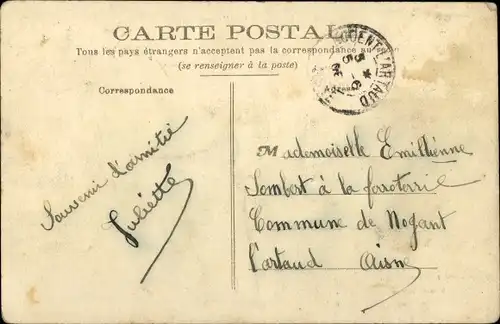 CARTE POSTALE
Tous les pays étrangers n'acceptent pas la correspondance au
(se renseigner à la poste)
Correspondance
Adresse
NOGENT L'ARTAUD
Souvenir d'amitié
Juliette
Mademoiselle Emillienne
Jombert à la
Commune de Nogant
l'artaud Aisne